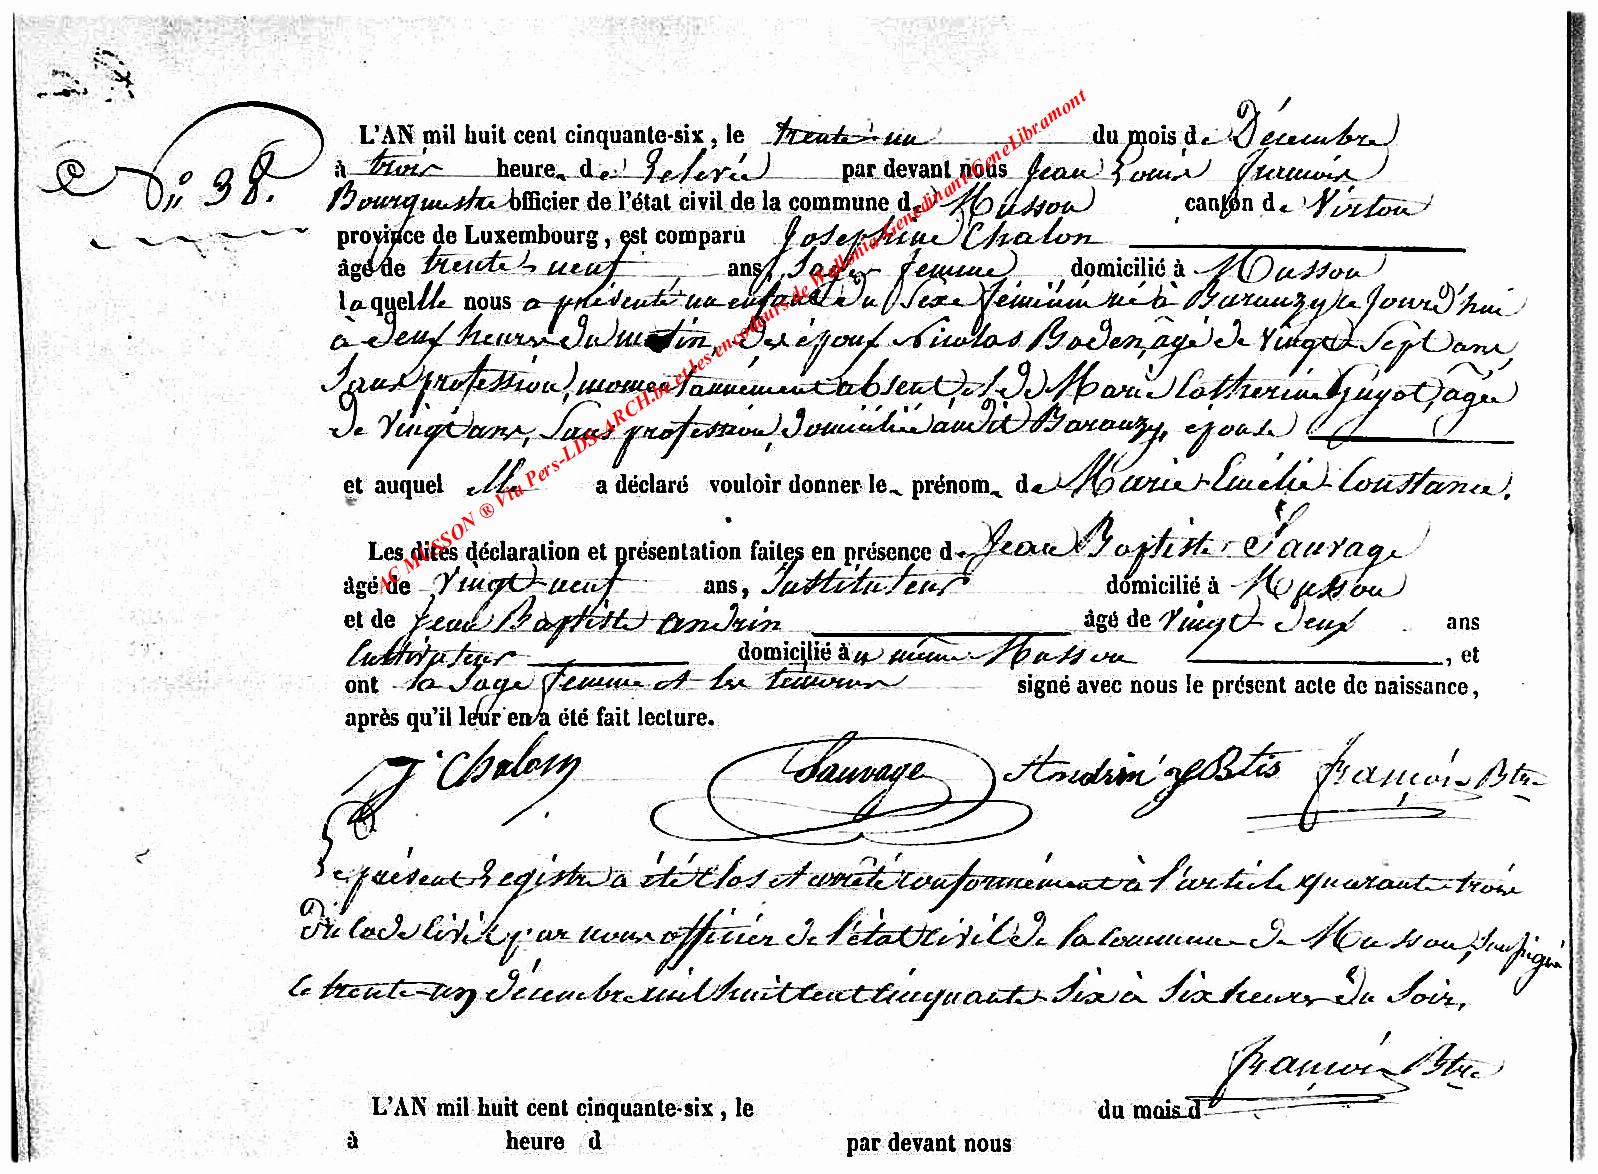 N° 38.
L'AN mil huit cent cinquante-six, le trente-un du mois de Décembre
à trois heures de relevé par devant nous Jean Louis François
Bourgmestre officier de l'état civil de la commune de Musson canton de Virton
province de Luxembourg, est comparu Josephine Chalon
âgé de trente-neuf ans, Sage femme domicilié à Musson
laquelle nous a présenté un enfant du Sexe féminin né à Baranzy ce jourd'hui
à deux heures du matin, des époux Nicolas Boden, âgé de vingt-Sept ans,
Sans profession, momentannément absent, et de Marie Catherine Guyot, âgée
de vingt ans, Sans profession, domiciliée audit Baranzy, épouse
et auquel elle a déclaré vouloir donner les prénoms de Marie-Emélie-Constance.
Les dites déclaration et présentation faites en présence de Jean Baptiste Sauvage
âgé de vingt-neuf ans, Instituteur domicilié à Musson
et de Jean Baptiste Andrin âgé de vingt-deux ans
Cultivateur domicilié au même Musson, et
ont la Sage femme et les témoins signé avec nous le présent acte de naissance,
après qu'il leur en a été fait lecture.
J. Chalon Sauvage Andrin J Btis François Btre
Le présent Registre a été clos et arrêté conformément à l'article quarante-trois
du Code Civil par nous officier de l'état civil de la commune de Musson, Soussigné
le trente-un décembre mil huit cent cinquante-Six à Six heures du Soir.
François Btre
L'AN mil huit cent cinquante-six, le du mois d
à heure d par devant nous
AC MUSSON ® Via Pers-LDS-ARCH.be et les encodeurs de Wallonia-Genedinant-GeneLibramont